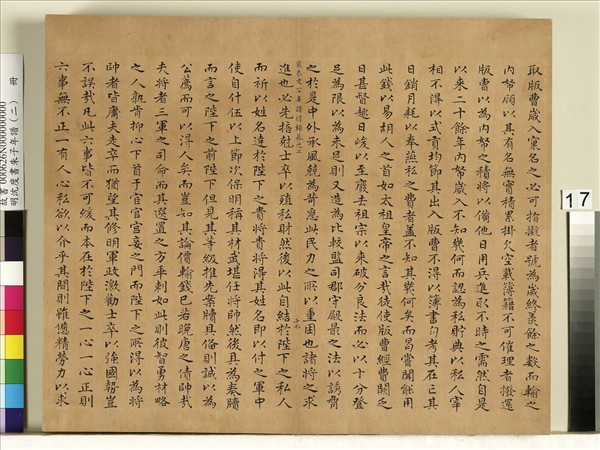 取版曹歲入窠名之必可指擬者號為歲終羨餘之數而輸之
內帑顧以其有名無實積累掛欠空載簿籍不可催理者撥還
版曹以為內帑之積將以備他日用兵進取不時之需然自是
以來二十餘年內帑歲入不知幾何而認為私貯典以私人宰
相不得以式貢均節其出入版曹不得以簿書勾考其在亡其
日銷月耗以奉燕私之費者蓋不知其幾何矣而曷嘗聞能用
此錢以易胡人之首如太祖皇帝之言哉徒使版曹經費闕乏
日甚督趣日峻以至廢去祖宗以來破分良法而必以十分登
足為限以為未足則又造為比較監司郡守殿最之法以誘脅
之於是中外承風競為苛急此民力之所以重困也諸將之求
朱文公年譜附錄卷之二
進也必先掊尅士卒以殖私財然後以此自結於陛下之私人
而祈以姓名達於陛下之貴將貴將得其姓名即以付之軍中
使自什伍以上節次保明稱其材武堪任將帥然後具為奏牘
而言之陛下之前陛下但見其等級推先案牘具備則誠以為
公薦而可以得人矣而豈知其論價輸錢已若晚唐之債帥哉
夫將者三軍之司命而其選置之方乖剌如此則彼智勇材略
之人孰肯抑心下首于宦官宮妾之門而陛下之所得以為將
帥者皆庸夫走卒而猶望其修明軍政激勸士卒以強國勢豈
不誤哉凡此六事皆不可緩而本在於陛下之一心一心正則
六事無不正一有人心私欲以介乎其間則雖憊精勞力以求
17
故書000626N000000000
明沈度書朱子年譜(二) 冊